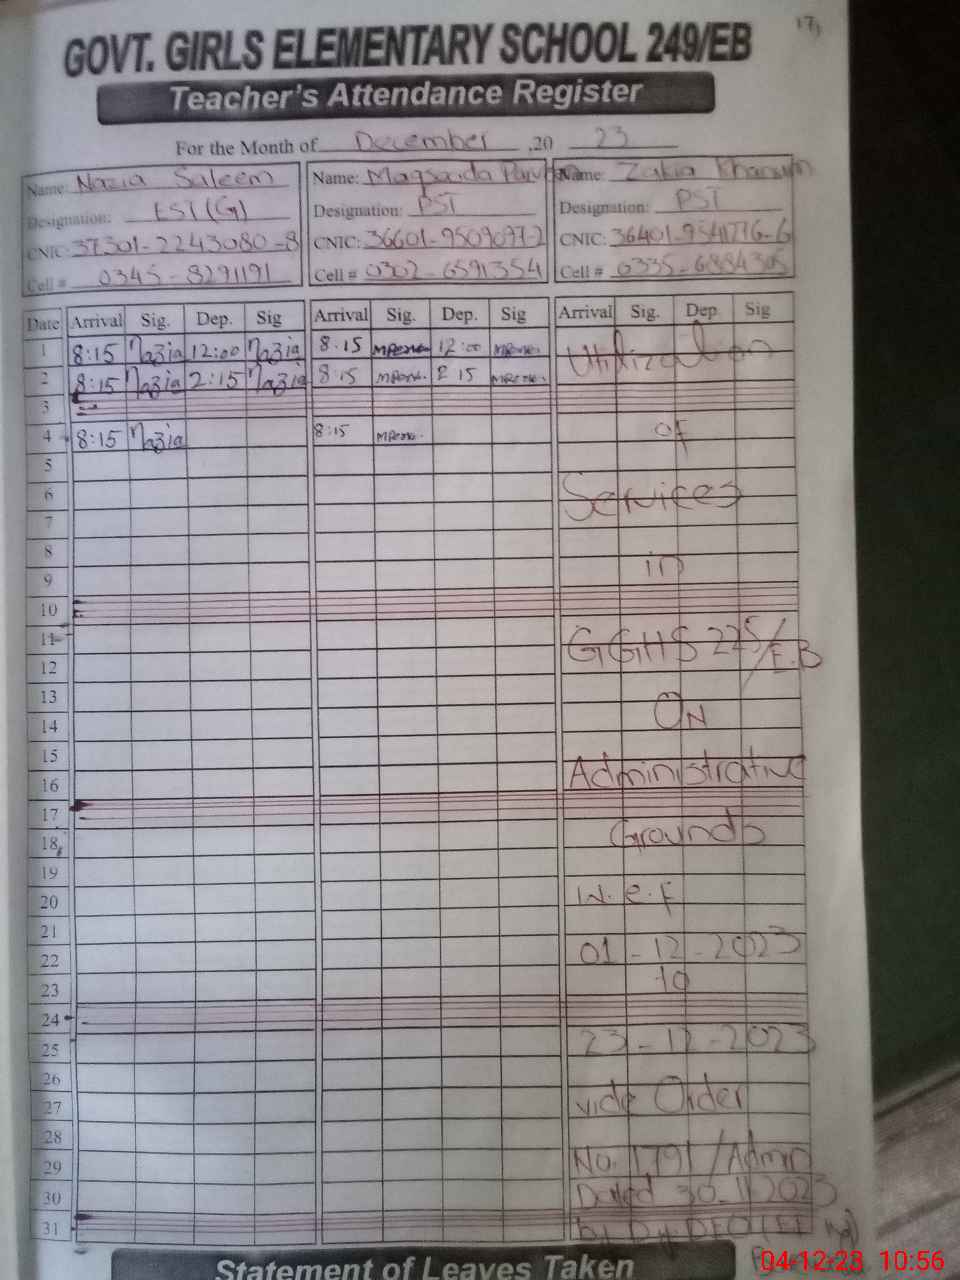 17
GOVT. GIRLS ELEMENTARY SCHOOL 249/EB
Teacher's Attendance Register
For the Month of December ,20 23
Name: Nazia Saleem
Designation: EST(G)
CNIC: 37301-2243080-8
Cell # 0345-8291191
Name: Maqsooda
Designation: PST
CNIC: 36601-9509097-2
Cell # 0302-6591354
Name: Zakia Khanum
Designation: PST
CNIC: 36401-9541776-6
Cell # 0335-6884305
Date Arrival Sig. Dep. Sig Arrival Sig. Dep. Sig Arrival Sig. Dep. Sig
1 8:15 Nazia 12:00 Nazia 8:15 12:00
2 8:15 Nazia 2:15 Nazia 8:15 2 15
3
4 8:15 Nazia 8:15
5
6
7
8
9
10
11
12
13
14
15
16
17
18
19
20
21
22
23
24
25
26
27
28
29
30
31
Utilization
of
Services
in
GGHS 225/E.B
ON
Administrative
Grounds
W.e.f
01-12-2023
to
23-12-2023
vide Order
No. 1791/Admn
Dated 30-11-2023
by Dy. DEO(EE
Statement of Leaves Taken
04-12-23 10:56